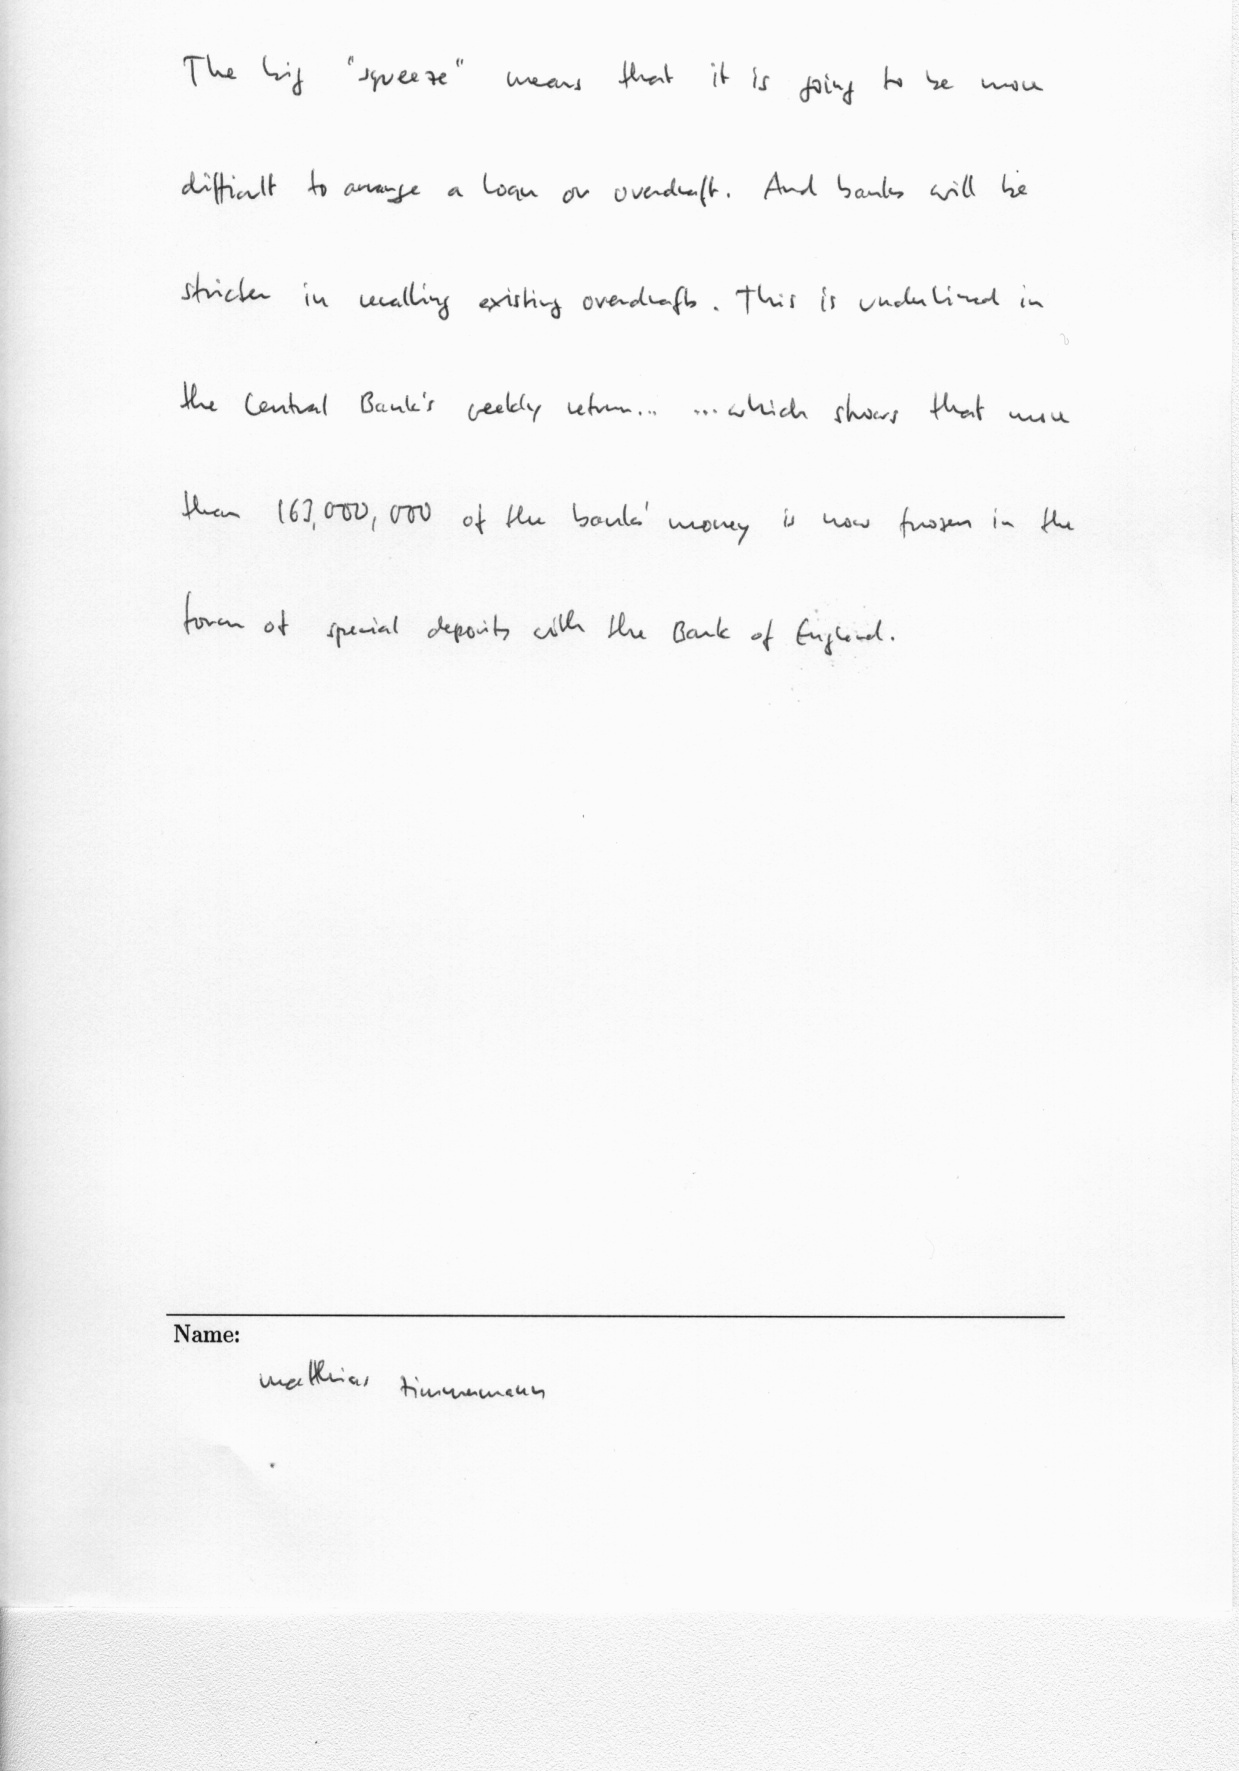 The big "squeeze" means that it is going to be more
difficult to arrange a loan or overdraft. And banks will be
stricter in recalling existing overdrafts. This is underlined in
the Central Bank's weekly return... ...which shows that more
than 163,000,000 of the banks' money is now frozen in the
form of special deposits with the Bank of England.
Name:
matthias timmermann